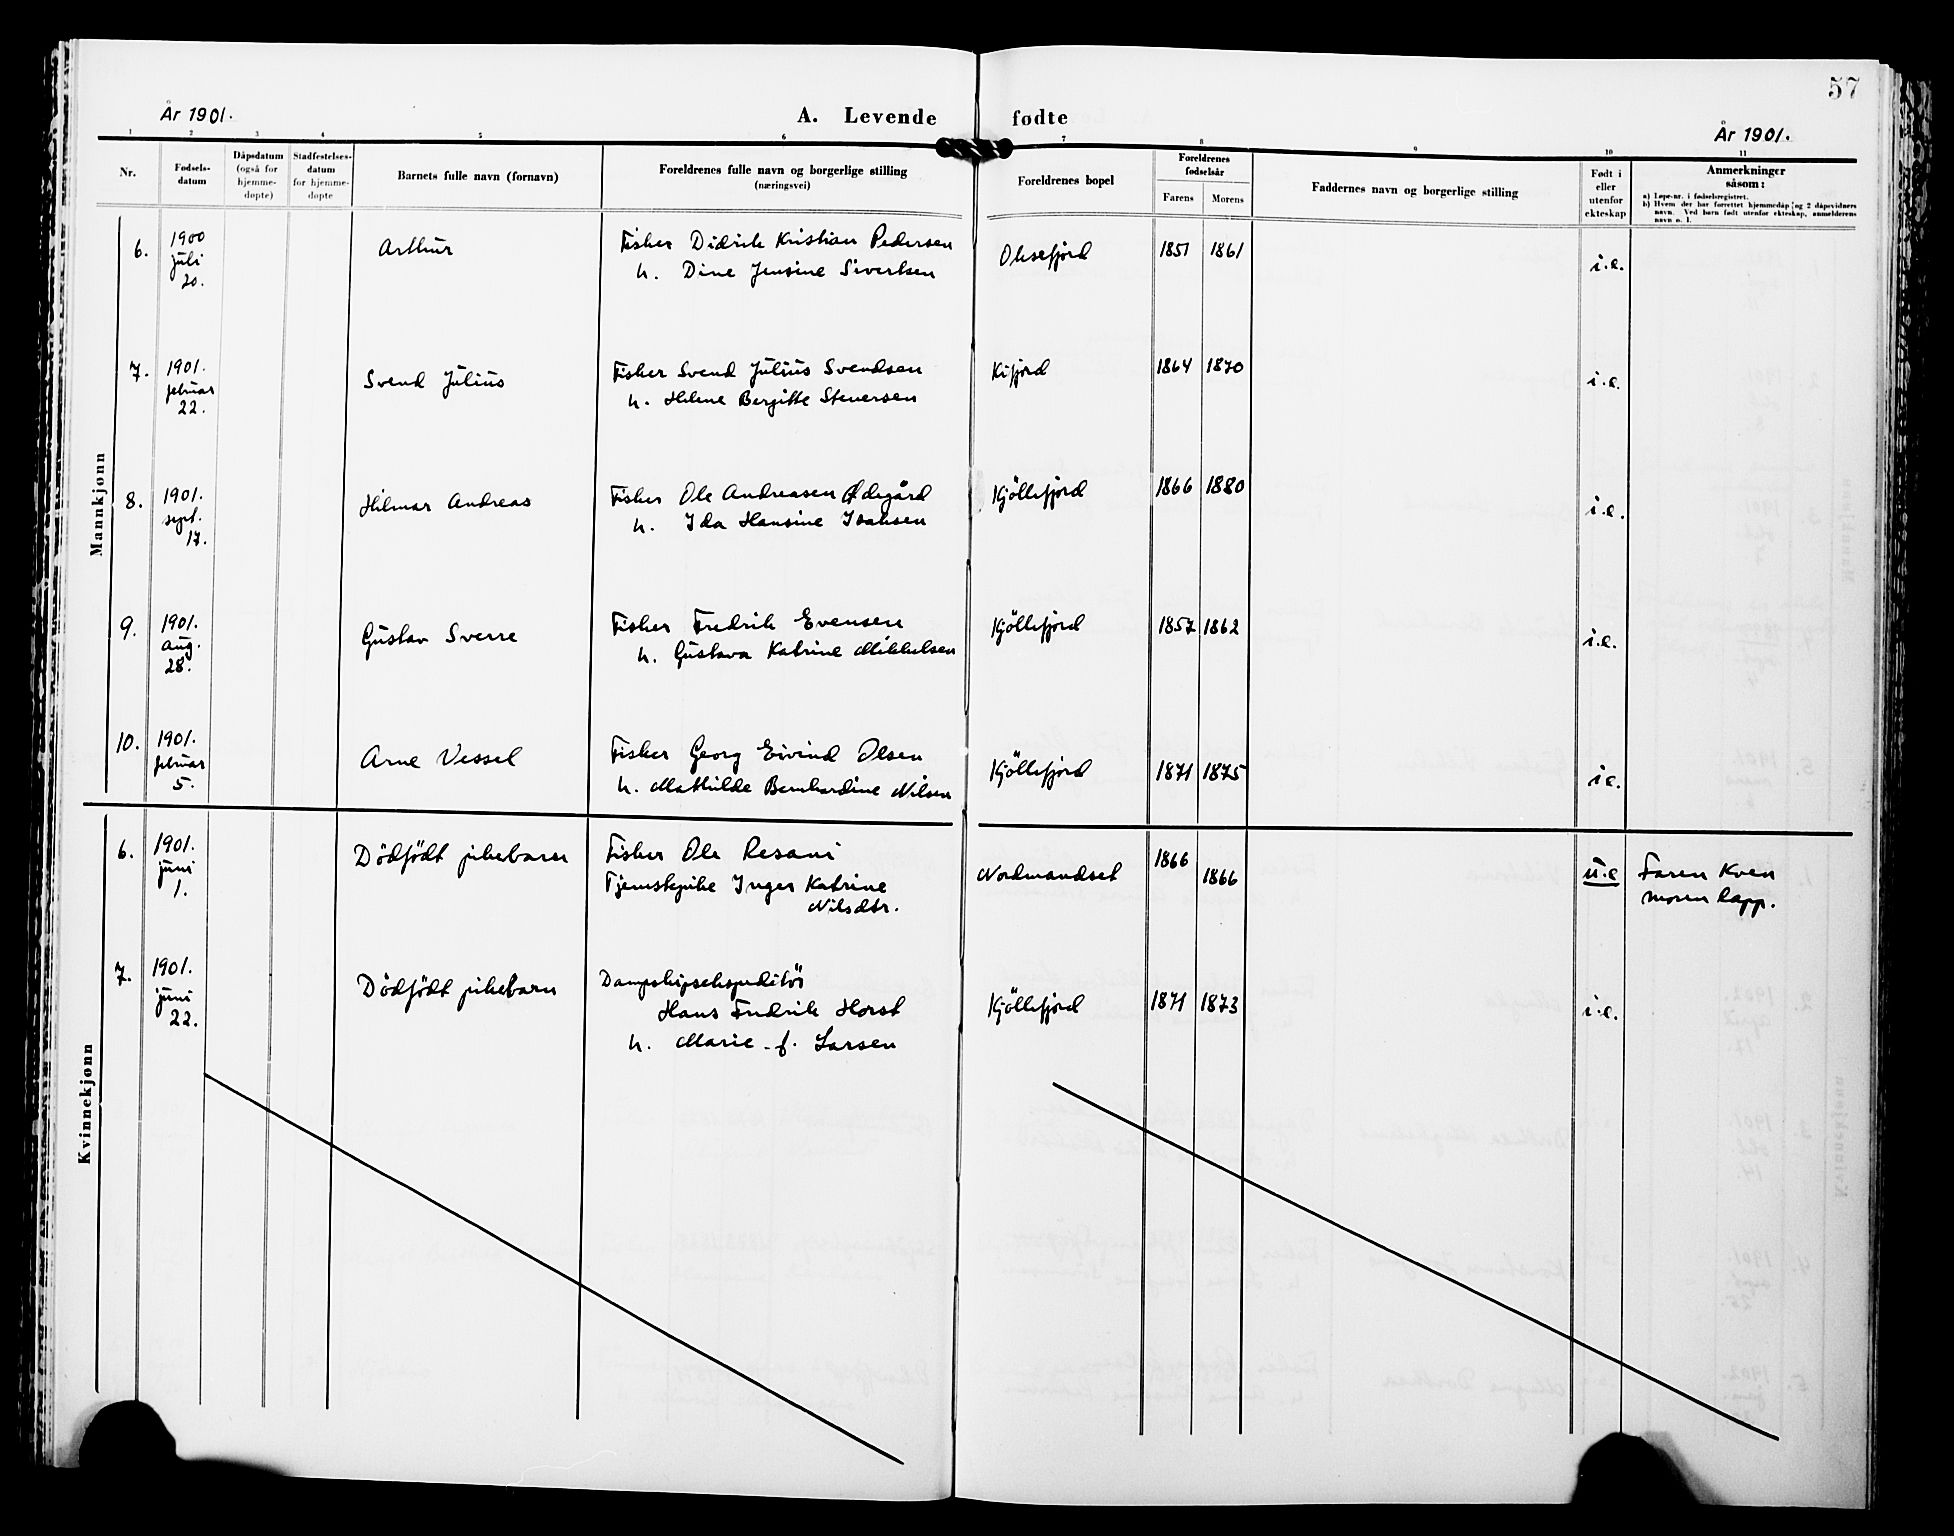 57
År 1901.
A. Levende fødte
År 1901.
1 2 3 4 5 6 7 8 9 10 11
Nr.
Fødsels-
datum
Dåpsdatum
(også for
hjemme-
døpte)
Stadfestelses-
datum
for hjemme-
døpte
Barnets fulle navn (fornavn)
Foreldrenes fulle navn og borgerlige stilling
(næringsvei)
Foreldrenes bopel
Foreldrenes
fødselsår
Farens Morens
Faddernes navn og borgerlige stilling
Født i
eller
utenfor
ekteskap
Anmerkninger
såsom:
a) Løpe-nr. i fødselsregistret.
b) Hvem der har forrettet hjemmedåp og 2 dåpsvidners
navn. Ved barn født utenfor ekteskap, anmelderens
navn o. l.
Mannkjønn
6. 1900 juli 20. Arthur
Fisker Didrik Kristian Pedersen
h. Dine Jensine Sivertsen
Oksefjord 1851 1861 i.e.
7. 1901. februar 22. Svend Julius
Fisker Svend Julius Svendsen
h. Helene Bergitte Stenersen
Kifjord 1864 1870 i.e.
8. 1901. sept. 17. Hilmar Andreas
Fisker Ole Andreasen Ødegård
h. Ida Hansine Isaksen
Kjöllefjord 1866 1880 i.e.
9. 1901. aug. 28. Gustav Sverre
Fisker Fredrik Evensen
h. Gustava Katrine Mikkelsen
Kjöllefjord 1857 1862 i.e.
10. 1901. februar 5. Arne Vessel
Fisker Georg Eivind Olsen
h. Mathilde Bernhardine Nilsen
Kjöllefjord 1871 1875 i.e.
Kvinnekjønn
6. 1901. juni 1. Dödfödt pikebarn
Fisker Ole Resani
Tjenestepike Inger Katrine
Nilsdtr.
Nordmandset 1866 1866 u.e
Faren Kven
moren lapp.
7. 1901. juni 22. Dödfödt pikebarn
Dampskipsekspeditör
Hans Fredrik Horst
h. Marie f. Larsen
Kjöllefjord 1871 1873 i.e.